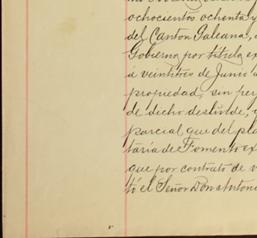 ochocientos ochenta y
del Canton Galeana,
Gobierno por título ex
á veintitres de Junio
propiedad, sin per
de dicho deslinde,
parcial que del pla
taría de Fomento ex
que por contrato de v
tó el Señor Don Antonio